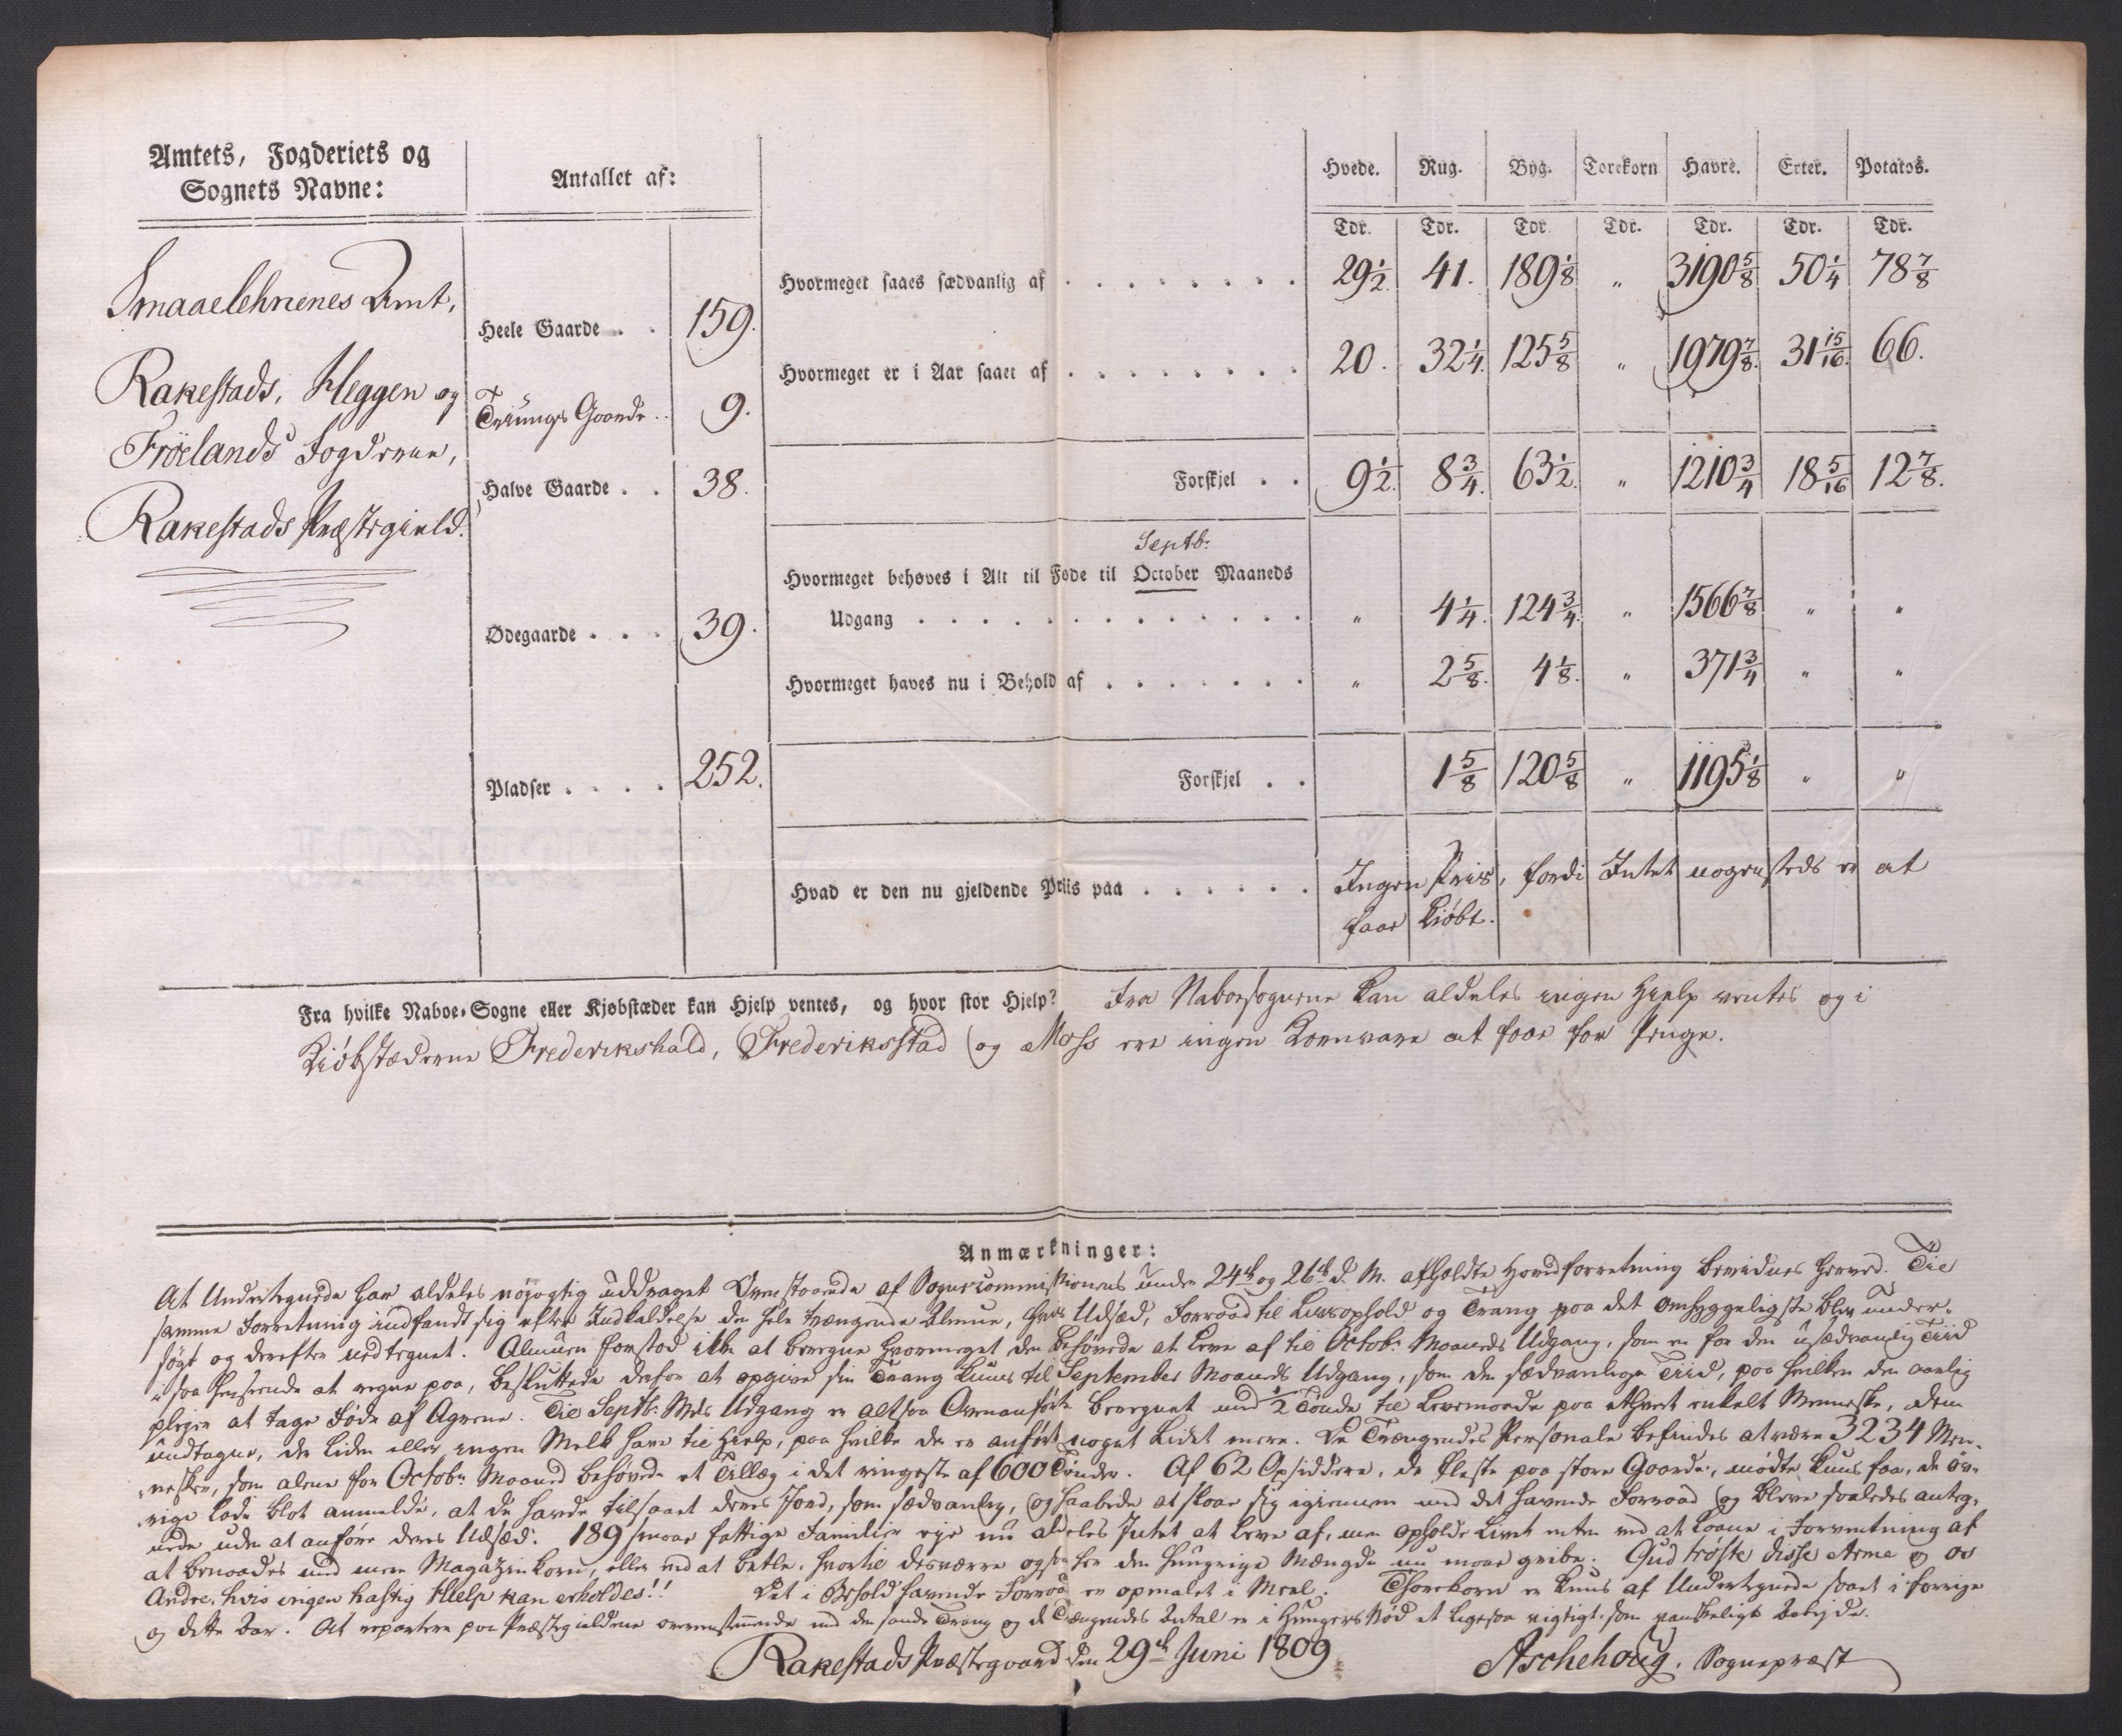 Amtets, Fogderiets og
Sognets Navne:
Antallet af:
Hvede. Rug. Byg. Torekorn Havre. Erter. Potatos.
Tdr. Tdr. Tdr Tdr. Tdr. Tdr. Tdr.
Smaaelehnenes Amt,
Rakestads, Heggen og
Frölands Fogderie,
Rakestads Præstegield.
Heele Gaarde . . 159.
Tvüngs Gaarde . . 9.
Halve Gaarde . . 38.
Ødegaarde . . . 39.
Pladser . . . . 252.
Hvormeget saaes sædvanlig af . . . . . . . . 29 1/2 41. 189 1/8 „ 3190 5/8 50 1/4 78 7/8
Hvormeget er i Aar saaet af . . . . . . . . 20. 32 1/4. 125 5/8 „ 1979 7/8. 31 15/16. 66.
Forskjel . . 9 1/2. 8 3/4. 63 1/2. „ 1210 3/4 18 5/16 12 7/8.
Septb:
Hvormeget behøves i Alt til Føde til October Maaneds
Udgang . . . . . . . . . . . . . „ 4 1/4. 124 3/4. „ 1566 7/8 „ „
Hvormeget haves nu i Behold af . . . . . . . „ 2 5/8. 4 1/8. „ 371 3/4 „ „
Forskjel . . 1 5/8 120 5/8 „ 1195 1/8 „ „
Hvad er den nu gjeldende Priis paa . . . . . . Ingen Priis, fordi Intet nogensteds er at
faae kiöbt.
Fra hvilke Naboe-Sogne eller Kjøbstæder kan Hjelp ventes, og hvor stor Hjelp? Fra Naboesognene kan aldeles ingen Hielp ventes og i
Kiöbstæderne Frederikshald, Frederiksstad og Moss ere ingen Kornvare at faae for Penge.
Anmærkninger:
At Undertegnede har aldeles nöjagtig uddraget Ovenstaaende af Sognecommissionens under 24de og 26de d. M. afholdte Hovedforretning bevidnes herved. Til
samme Forretning indfandt sig efter Indkaldelse den hele trængende Almue, hvis Udsæd, Forraad til Livsophold og Trang paa det omhyggeligste blev under-
søgt og derefter nedtegnet. Almuen forstod ikke at beregne hvormeget den behövede at leve af til Octob: Maaneds Udgang, som er for den usædvanlig Tiid
i saa Henseende at regne paa, besluttede derfor at opgive sin Trang kuns til September Maaneds Udgang, som den sædvanlige Tiid, paa hvilken den aarlig
plejer at tage Føde af Agrene. Til Septb: Mds Udgang er altsaa Ovenanførte beregnet med 1/2 Tönde til Levemaade paa ethvert enkelt Menneske, dem
undtagne, der liden eller ingen Melk have til Hielp, paa hvilke der er anført noget lidet mere. De Trængendes Personale befindes at være 3234 Men-
nesker, som alene for Octobr Maaned behøvede et Tillæg i det ringeste af 600 Tønder. Af 62 Opsiddere, de fleste paa store Gaarde, mødte kuns faa, de öv-
rige lode blot anmelde, at de havde tilsaaet deres Jord, som sædvanlig, og haabede at slaae sig igiennem med det havende Forraad og bleve saaledes anteg-
nede uden at anføre deres Udsæd. 189 smaae fattige Familier eje nu aldeles Intet at leve af, men opholde Livet enten ved at laane i Forventning af
at benaades med mere Magazinkorn, eller ved at betle, hvortil desværre ogsaa her den hungrige Mængde nu maae gribe. Gud trøste disse Arme og os
Andre, hvis ingen hastig Hielp kan erholdes!! Det i Behold havende Forraad er opmalet i Meel. Thorekorn er kuns af Undertegnede saaet i forrige
og dette Aar. At repartere paa Præstegieldene overensstemmende med den sande Trang og de Trængendes Antal er i Hungers Nød et ligesaa vigtigt, som vanskeligt Arbejde.
Rakestads Præstegaard den 29de Juni 1809
Aschehoug, Sognepræst